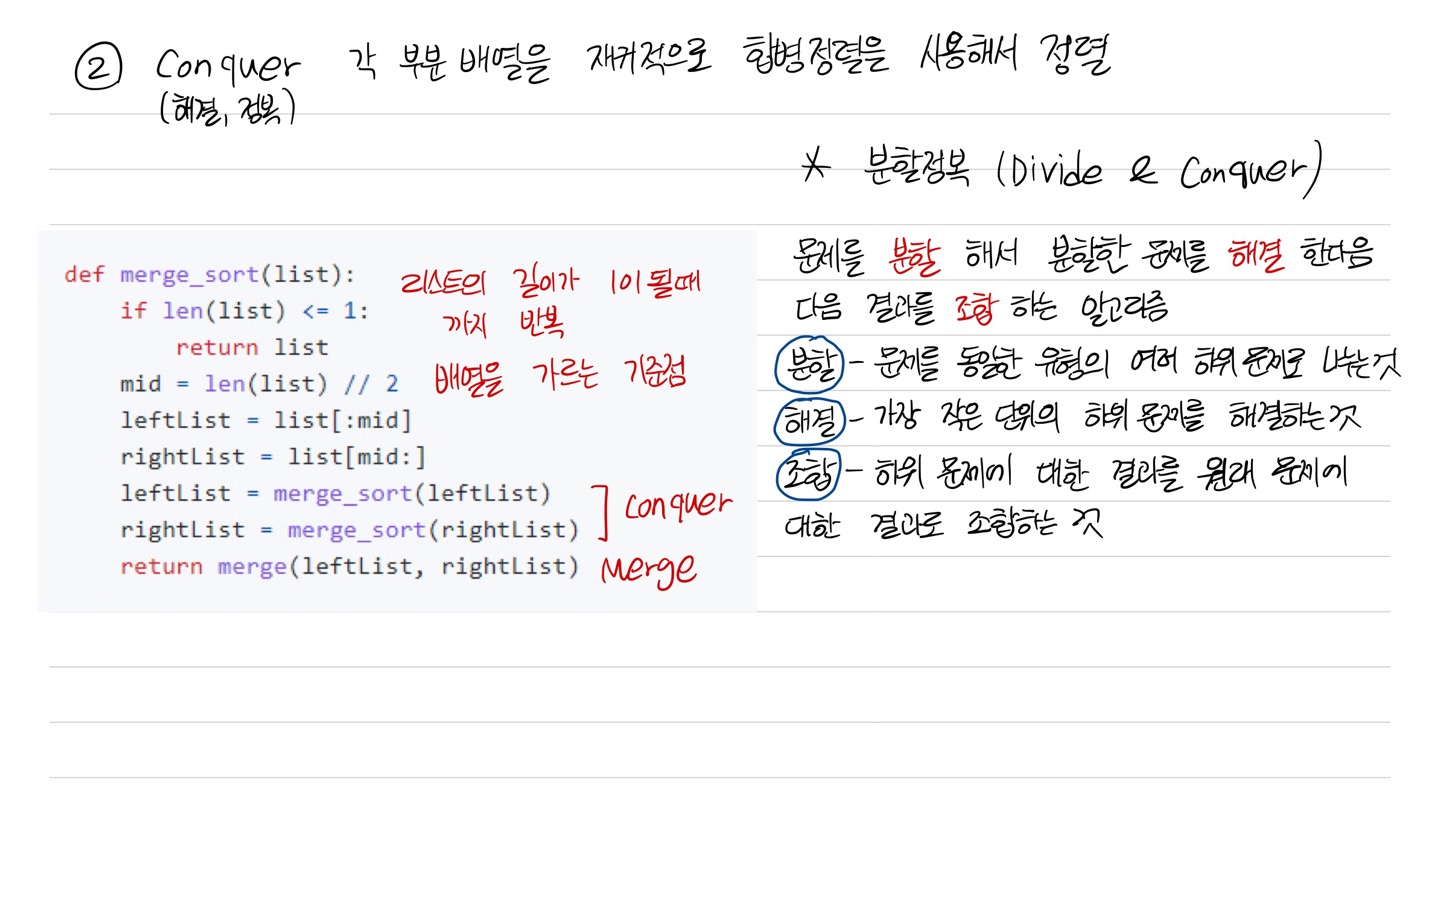 ② Conquer 각 부분 배열을 재귀적으로 합병정렬을 사용해서 정렬
(해결, 정복)
* 분할정복 (Divide & Conquer)
def merge_sort(list):
    if len(list) <= 1:
        return list
    mid = len(list) // 2
    leftList = list[:mid]
    rightList = list[mid:]
    leftList = merge_sort(leftList)
    rightList = merge_sort(rightList)
    return merge(leftList, rightList)
리스트의 길이가 1이 될때
까지 반복
배열을 가르는 기준점
] Conquer
Merge
문제를 분할 해서 분할한 문제를 해결 한다음
다음 결과를 조합 하는 알고리즘
분할 - 문제를 동일한 유형의 여러 하위 문제로 나누는 것
해결 - 가장 작은 단위의 하위 문제를 해결하는 것
조합 - 하위 문제에 대한 결과를 원래 문제에
대한 결과로 조합하는 것